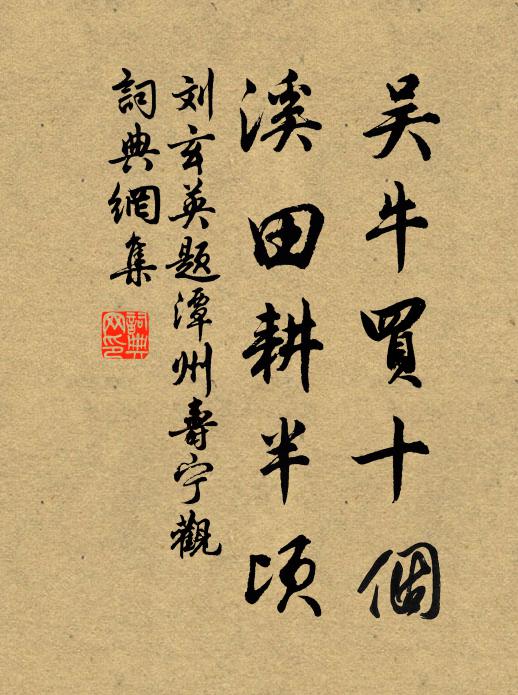 吴牛買十個
溪田耕半頃
刘玄英题潭州壽宁觀
詞典網集
詞典網印